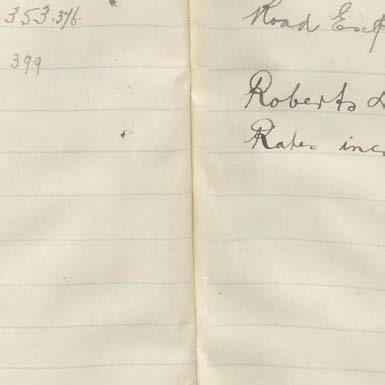 353.376.
399
Road
Roberts
Rates inc